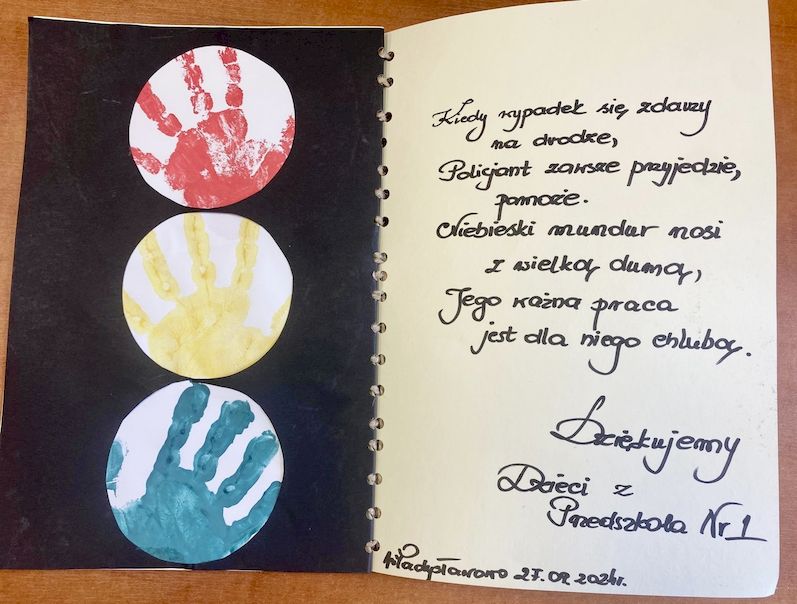 Kiedy wypadek się zdarzy
na drodze,
Policjant zawsze przyjedzie,
pomoże.
Niebieski mundur nosi
z wielką dumą,
Jego ważna praca
jest dla niego chlubą.
Dziękujemy
Dzieci z
Przedszkola Nr 1
Władysławowo 27.09.2024r.